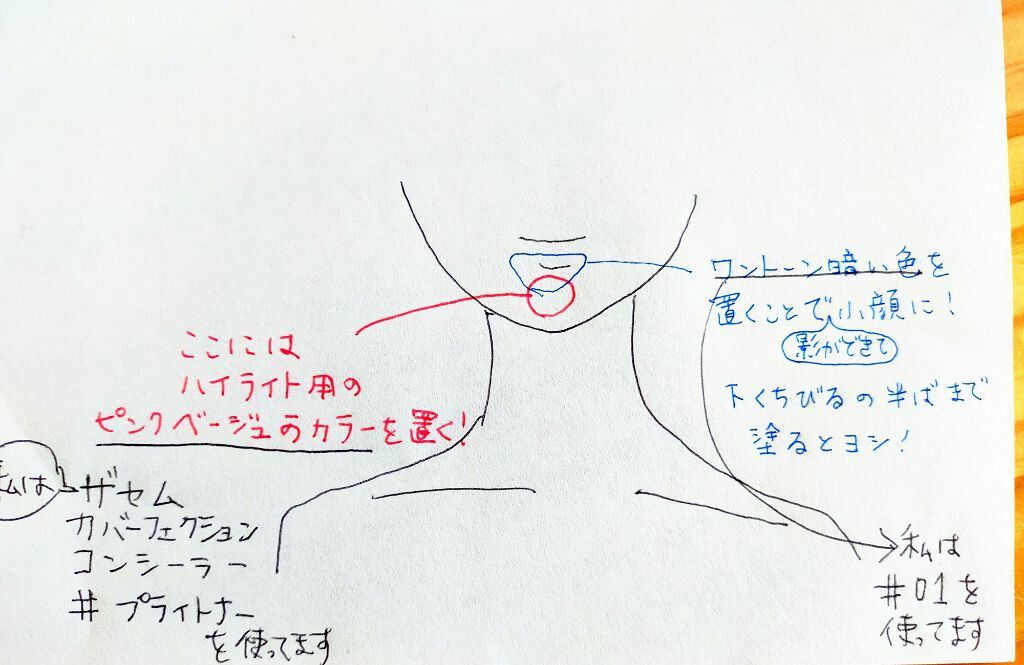 ワントーン暗い色を
置くことで小顔に!
影ができて
下くちびるの半ばまで
塗るとヨシ!
ここには
ハイライト用の
ピンクベージュのカラーを置く!
私は
ザセム
カバーフェクション
コンシーラー
# ブライトナー
を使ってます
私は
#01を
使ってます